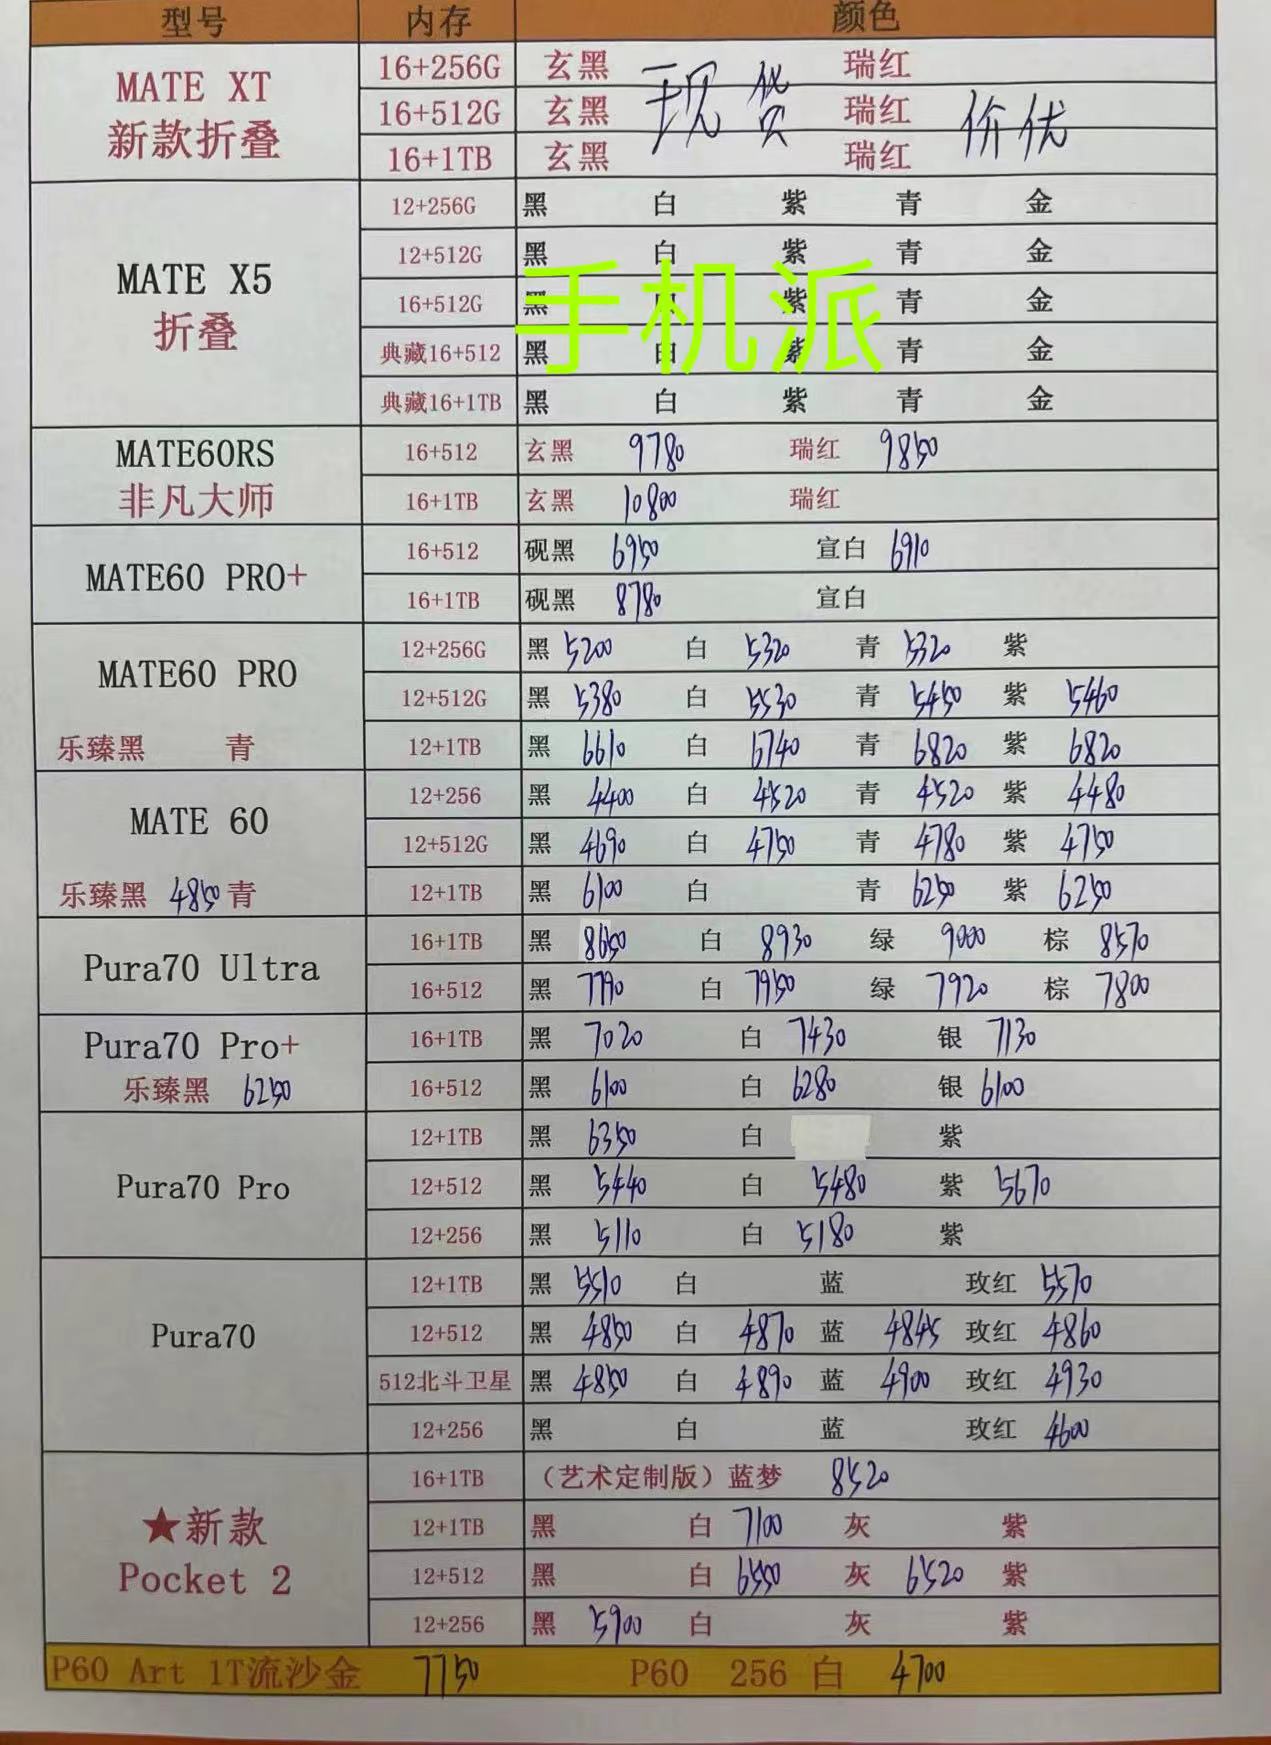 型号 内存 颜色
MATE XT 新款折叠
16+256G 玄黑 瑞红
16+512G 玄黑 现货 瑞红 价优
16+1TB 玄黑 瑞红
MATE X5 折叠
12+256G 黑 白 紫 青 金
12+512G 黑 白 紫 青 金
手机派
16+512G 黑 白 紫 青 金
典藏16+512 黑 白 紫 青 金
典藏16+1TB 黑 白 紫 青 金
MATE60RS 非凡大师
16+512 玄黑 9780 瑞红 9850
16+1TB 玄黑 10800 瑞红
MATE60 PRO+
16+512 砚黑 6950 宣白 6910
16+1TB 砚黑 8780 宣白
MATE60 PRO
12+256G 黑 5200 白 5320 青 5320 紫
12+512G 黑 5380 白 5530 青 5450 紫 5460
乐臻黑 青
12+1TB 黑 6610 白 6740 青 6820 紫 6820
MATE 60
12+256 黑 4400 白 4520 青 4520 紫 4480
12+512G 黑 4690 白 4750 青 4780 紫 4750
乐臻黑 4850 青
12+1TB 黑 6100 白 青 6250 紫 6250
Pura70 Ultra
16+1TB 黑 8650 白 8930 绿 9000 棕 8570
16+512 黑 7790 白 7950 绿 7920 棕 7800
Pura70 Pro+
16+1TB 黑 7020 白 7430 银 7130
乐臻黑 6250
16+512 黑 6100 白 6280 银 6100
Pura70 Pro
12+1TB 黑 6350 白 紫
12+512 黑 5440 白 5480 紫 5670
12+256 黑 5110 白 5180 紫
Pura70
12+1TB 黑 5510 白 蓝 玫红 5570
12+512 黑 4850 白 4870 蓝 4845 玫红 4860
512北斗卫星 黑 4850 白 4890 蓝 4900 玫红 4930
12+256 黑 白 蓝 玫红 4600
★新款 Pocket 2
16+1TB (艺术定制版)蓝梦 8520
12+1TB 黑 白 7100 灰 紫
12+512 黑 白 6550 灰 6520 紫
12+256 黑 5900 白 灰 紫
P60 Art 1T流沙金 7750 P60 256 白 4700